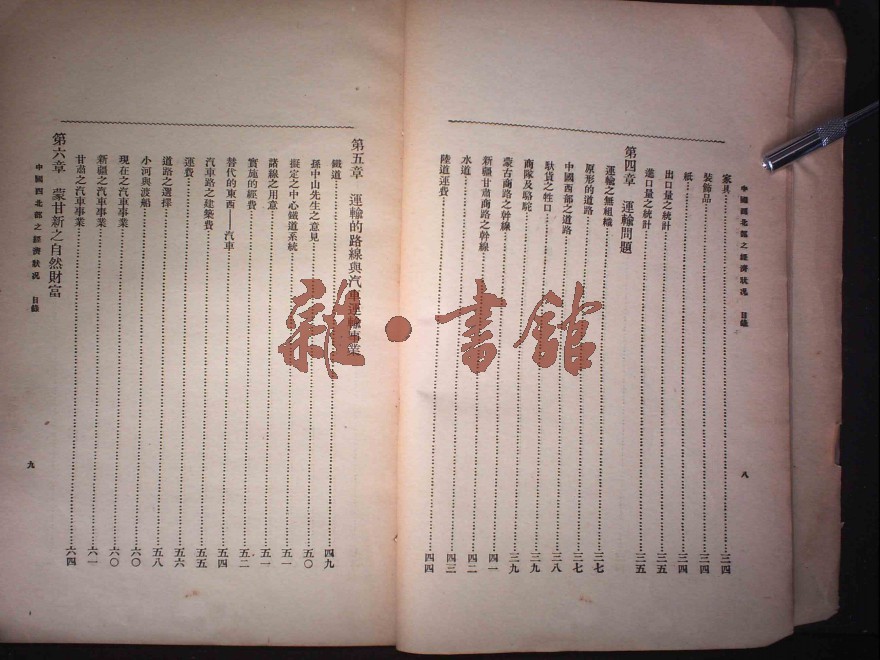 中國西北部之經濟狀況　目錄　八
家具……三四
裝飾品……三四
紙……三四
出口量之統計……三五
進口量之統計……三五
第四章　運輸問題
運輸之無組織……三七
原形的道路……三七
中國西部之道路……三八
馱貨之牲口……三九
商隊及駱駝……三九
蒙古商路之幹線……四一
新疆甘肅商路之幹線……四二
水道……四三
陸道運費……四四
第五章　運輸的路線與汽車運輸事業
鐵道……四九
孫中山先生之意見……五〇
擬定之中心鐵道系統……五一
諸線之用意……五一
實施的經費……五二
替代的東西——汽車……五四
汽車路之建築費……五五
運費……五六
道路之選擇……五八
小河與渡船……六〇
現在之汽車事業……六〇
新疆之汽車事業……六一
甘肅之汽車事業……六四
第六章　蒙甘新之自然財富
中國西北部之經濟狀況　目錄　九
雜·書館